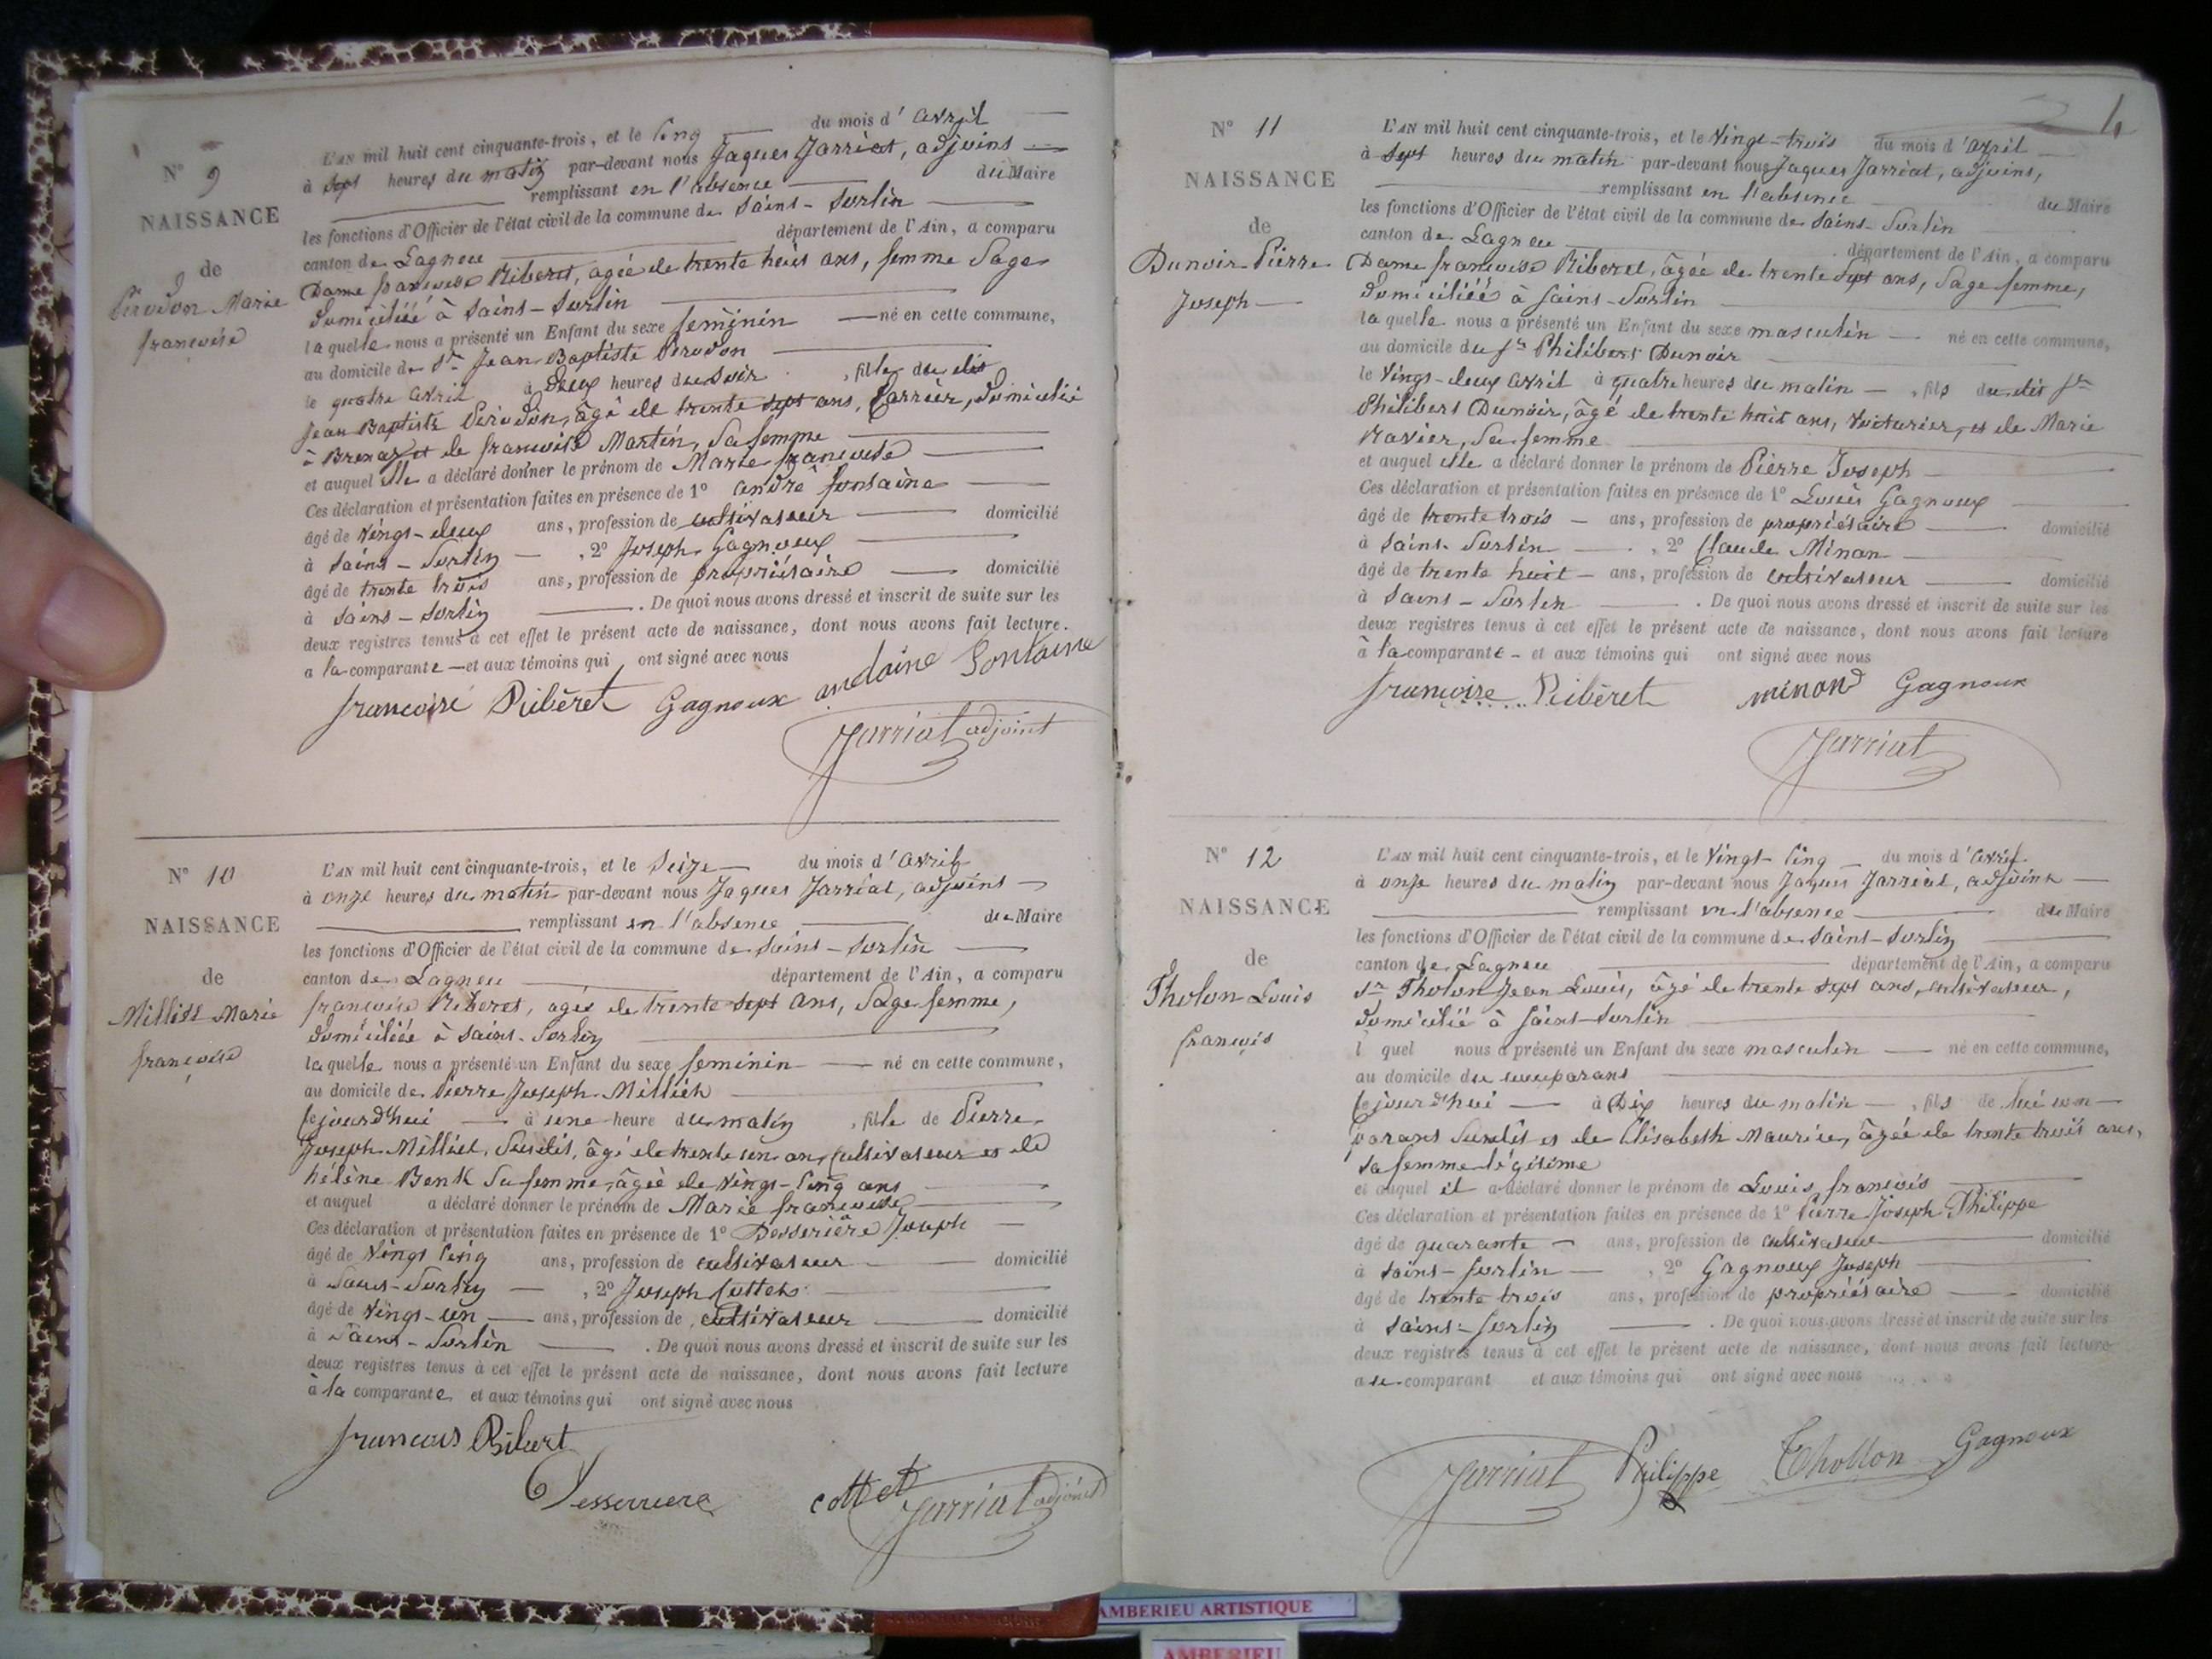 N° 9
NAISSANCE
de
Pérodon Marie
françoise
L'AN mil huit cent cinquante-trois, et le cinq du mois d'avril
à sept heures du matin par-devant nous Jaques Jarriat, adjoint
remplissant en l'absence du Maire
les fonctions d'Officier de l'état civil de la commune de Saint-Sorlin
canton de Lagneu département de l'Ain, a comparu
Dame françoise Riberet, agée de trente huit ans, femme Sage
domiciliée à Saint-Sorlin
laquelle nous a présenté un Enfant du sexe féminin né en cette commune,
au domicile de Sr Jean Baptiste Pérodon
le quatre avril à Deux heures du soir, fille du dit
Jean Baptiste Pérodon, âgé de trente sept ans, Carrier, domicilié
à et de françoise Martin, sa femme
et auquel elle a déclaré donner le prénom de Marie françoise
Ces déclaration et présentation faites en présence de 1° andré fontaine
âgé de vingt-deux ans, profession de cultivateur domicilié
à Saint-Sorlin, 2° Joseph Gagnoux
âgé de trente trois ans, profession de propriétaire domicilié
à Saint-Sorlin. De quoi nous avons dressé et inscrit de suite sur les
deux registres tenus à cet effet le présent acte de naissance, dont nous avons fait lecture.
a la comparante et aux témoins qui ont signé avec nous
françoise Ribèret Gagnoux andoine Fontaine
Jarriat adjoint
N° 10
NAISSANCE
de
Milliet Marie
françoise
L'AN mil huit cent cinquante-trois, et le Seize du mois d'avril
à onze heures du matin par-devant nous Jaques Jarriat, adjoint
remplissant en l'absence du Maire
les fonctions d'Officier de l'état civil de la commune de Saint-Sorlin
canton de Lagneu département de l'Ain, a comparu
françoise Riberet, agée de trente sept ans, Sage femme,
domiciliée à Saint-Sorlin
laquelle nous a présenté un Enfant du sexe feminin né en cette commune,
au domicile de Pierre Joseph Milliet
cejourd'hui à une heure du matin, fille de Pierre
Joseph Milliet, Susdit, âgé de trente un an, cultivateur et de
hélène sa femme, âgée de vingt-cinq ans
et auquel a déclaré donner le prénom de Marie françoise
Ces déclaration et présentation faites en présence de 1° Desserière Joseph
âgé de vingt cinq ans, profession de cultivateur domicilié
à Saint-Sorlin, 2° Joseph Cottet
âgé de vingt-un ans, profession de cultivateur domicilié
à Saint-Sorlin. De quoi nous avons dressé et inscrit de suite sur les
deux registres tenus à cet effet le présent acte de naissance, dont nous avons fait lecture
à la comparante et aux témoins qui ont signé avec nous
francois Riburt
Desserriere cottet Jarriat adjoint
4
N° 11
NAISSANCE
de
Dunoir Pierre
Joseph
L'AN mil huit cent cinquante-trois, et le vingt-trois du mois d'avril
à sept heures du matin par-devant nous Jaques Jarriat, adjoint,
remplissant en l'absence du Maire
les fonctions d'Officier de l'état civil de la commune de Saint-Sorlin
canton de Lagneu département de l'Ain, a comparu
Dame françoise Riberet, âgée de trente sept ans, Sage femme,
domiciliée à Saint-Sorlin
laquelle nous a présenté un Enfant du sexe masculin né en cette commune,
au domicile du Sr Philibert Dunoir
le vingt-deux avril à quatre heures du matin, fils du dit Sr
Philibert Dunoir, âgé de trente huit ans, voiturier, et de Marie
Ravier, sa femme
et auquel elle a déclaré donner le prénom de Pierre Joseph
Ces déclaration et présentation faites en présence de 1° Louis Gagnoux
âgé de trente trois ans, profession de propriétaire domicilié
à Saint-Sorlin, 2° Claude Minan
âgé de trente huit ans, profession de cultivateur domicilié
à Saint-Sorlin. De quoi nous avons dressé et inscrit de suite sur les
deux registres tenus à cet effet le présent acte de naissance, dont nous avons fait lecture
à la comparante et aux témoins qui ont signé avec nous
françoise Ribèret minond Gagnoux
Jarriat
N° 12
NAISSANCE
de
Tholon Louis
françois
L'AN mil huit cent cinquante-trois, et le vingt-cinq du mois d'avril
à onze heures du matin par-devant nous Jaques Jarriat, adjoint
remplissant en l'absence du Maire
les fonctions d'Officier de l'état civil de la commune de Saint-Sorlin
canton de Lagneu département de l'Ain, a comparu
Sr Tholon Jean Louis, âgé de trente sept ans, cultivateur,
domicilié à Saint-Sorlin
l quel nous a présenté un Enfant du sexe masculin né en cette commune,
au domicile du comparant
cejourd'hui à Dix heures du matin, fils de lui com-
parant susdit et de Elisabeth Maurice, âgée de trente trois ans,
sa femme légitime
et auquel il a déclaré donner le prénom de Louis françois
Ces déclaration et présentation faites en présence de 1° Pierre Joseph Philippe
âgé de quarante ans, profession de cultivateur domicilié
à Saint-Sorlin, 2° Gagnoux Joseph
âgé de trente trois ans, profession de propriétaire domicilié
à Saint-Sorlin. De quoi nous avons dressé et inscrit de suite sur les
deux registres tenus à cet effet le présent acte de naissance, dont nous avons fait lecture
a le comparant et aux témoins qui ont signé avec nous
Jarriat Philippe Thollon Gagnoux
AMBERIEU ARTISTIQUE
AMBERIEU